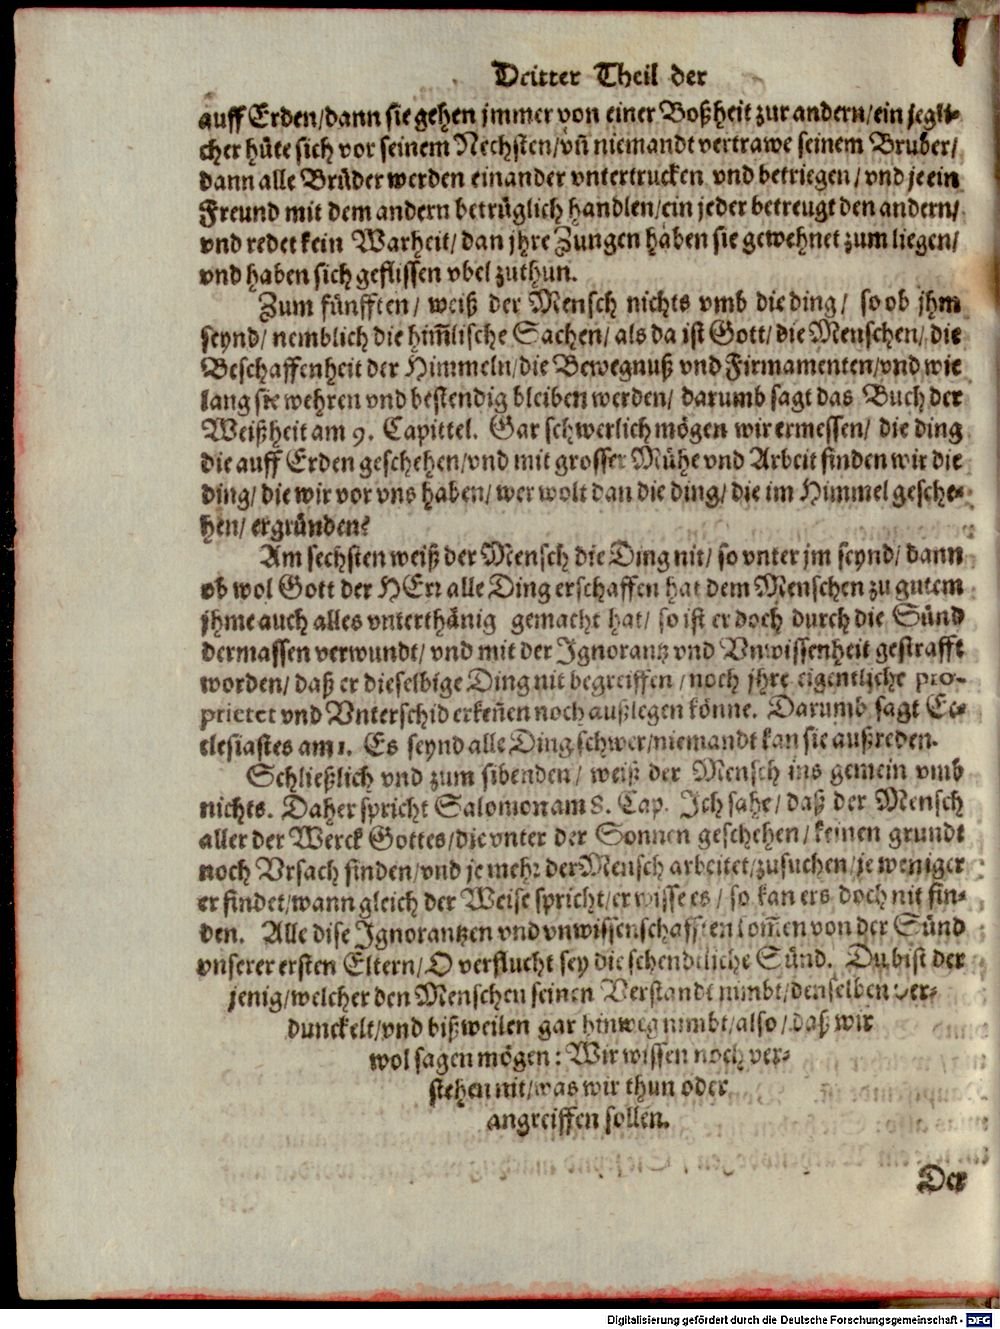 Dritter Theil der
auff Erden/dann sie gehen jmmer von einer Boßheit zur andern/ein jegli-
cher hüte sich vor seinem Nechsten/vñ niemandt vertrawe seinem Bruder/
dann alle Brüder werden einander vntertrucken vnd betriegen/vnd je ein
Freund mit dem andern betrüglich handlen/ein jeder betreugt den andern/
vnd redet kein Warheit/dan jhre Zungen haben sie gewehnet zum liegen/
vnd haben sich geflissen vbel zuthun.
Zum fünfften/ weiß der Mensch nichts vmb die ding/ so ob jhm
seynd/ nemblich die him̃lische Sachen/ als da ist Gott/ die Menschen/ die
Beschaffenheit der Himmeln/die Bewegnuß vnd Firmamenten/vnd wie
lang sie wehren vnd bestendig bleiben werden/ darumb sagt das Buch der
Weißheit am 9. Capittel. Gar schwerlich mögen wir ermessen/ die ding
die auff Erden geschehen/vnd mit grosser Mühe vnd Arbeit finden wir die
ding/ die wir vor vns haben/ wer wolt dan die ding/ die im Himmel gesche-
hen/ ergründen?
Am sechsten weiß der Mensch die Ding nit/ so vnter jm seynd/ dann
ob wol Gott der HErr alle Ding erschaffen hat dem Menschen zu gutem
jhme auch alles vnterthänig gemacht hat/ so ist er doch durch die Sünd
dermassen verwundt/ vnd mit der Ignorantz vnd Vnwissenheit gestrafft
worden/ daß er dieselbige Ding nit begreiffen/noch jhre eigentliche pro-
prietet vnd Vnterschid erkeñen noch außlegen könne. Darumb sagt Ec-
clesiastes am 1. Es seynd alle Ding schwer/niemandt kan sie außreden.
Schließlich vnd zum sibenden/ weiß der Mensch ins gemein vmb
nichts. Daher spricht Salomon am 8. Cap. Ich sahe/ daß der Mensch
aller der Werck Gottes/die vnter der Sonnen geschehen/keinen grundt
noch Vrsach finden/vnd je mehr der Mensch arbeitet/zusuchen/je weniger
er findet/wann gleich der Weise spricht/er wisse es/ so kan ers doch nit fin-
den. Alle dise Ignorantzen vnd vnwissenschafften kom̃en von der Sünd
vnserer ersten Eltern/O verflucht sey die schendtliche Sünd. Du bist der
jenig/welcher den Menschen seinen Verstandt nimbt/denselben ver-
dunckelt/vnd bißweilen gar hinweg nimbt/also/daß wir
wol sagen mögen: Wir wissen noch ver-
stehen nit/was wir thun oder
angreiffen sollen.
Der
Digitalisierung gefördert durch die Deutsche Forschungsgemeinschaft - DFG